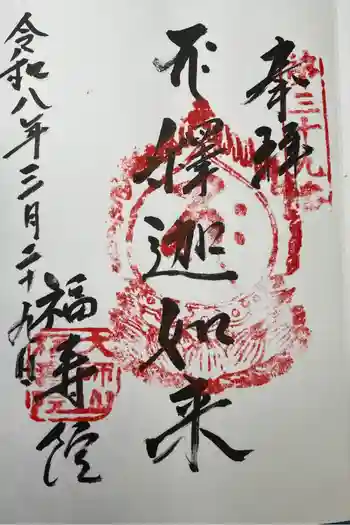 奉拝
釋迦如来
令和八年三月二十九日
福寿院